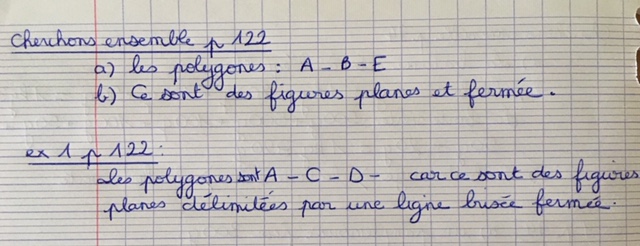 Cherchons ensemble p 122
a) les polygones : A - B - E
b) Ce sont des figures planes et fermée.
ex 1 p 122 :
Les polygones sont A - C - D - car ce sont des figures
planes délimitées par une ligne brisée fermée.